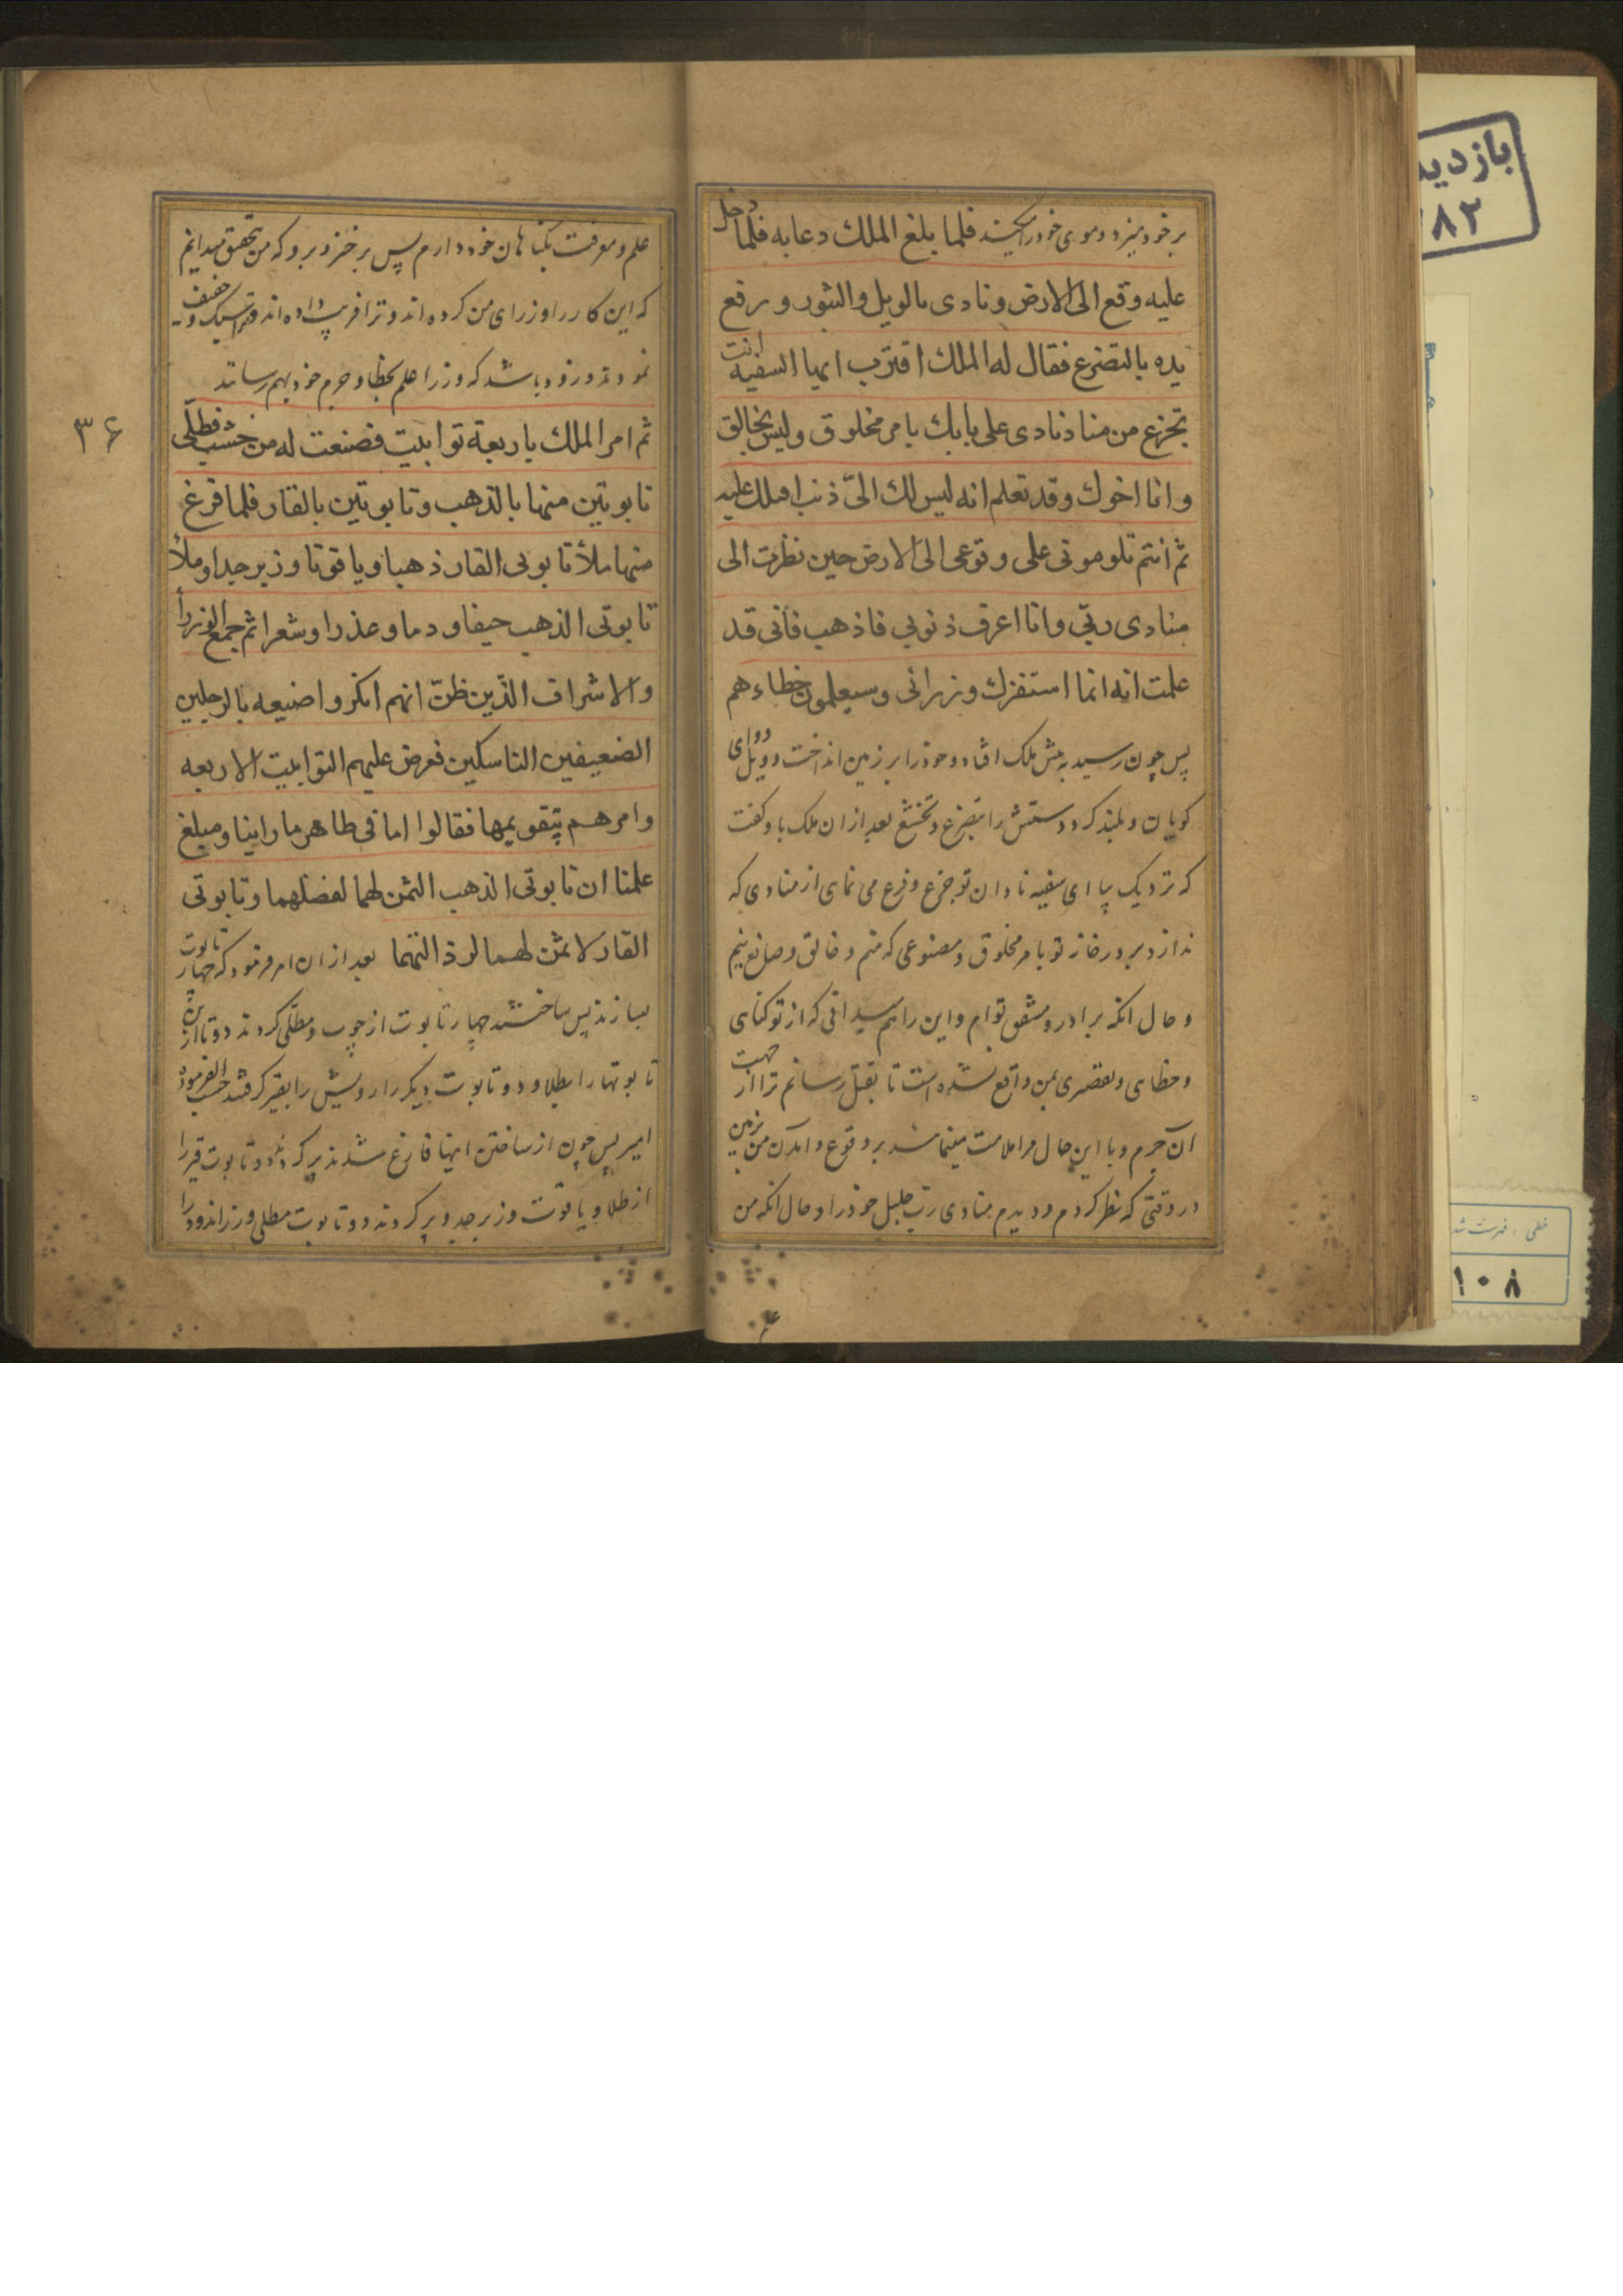 بر خود میزد و موی خود را میکند فلما بلغ الملك دعا به فلما دخل
عليه وقع الى الارض ونادى بالويل والثبور ورفع
يده بالتضرع فقال له الملك اقترب ايها السفيه انت
تجزع من مناد نادى على بابك بامر مخلوق وليس بخالق
وانا اخوك وقد تعلم انه ليس لك الىّ ذنب اقتلك عليه
ثم انتم تلومونى على وقوعى الى الارض حين نظرت الى
منادى ربّي وانا اعرف ذنوبي فاذهب فانى قد
علمت انه انما استفزك وزرائى وسيعلمون خطاءهم
پس چون رسید به پیش ملک افتاد و خود را بر زمین انداخت و ویل ووای
کویان و بلند کرد دستش را بتضرع و تخشع بعد از ان ملک باو کفت
که نزدیک بیا ای سفیه نادان تو جزع و فزع می نمای از منادی که
ندا زد بر در خانه تو بامر مخلوق و مصنوعی که منم و خالق و صانع نیم
و حال انکه برادر و مشفق توام و این را هم میدانی که از تو کناهی
و خطای و تقصیری بمن واقع نشده است تا بقتل رسانم ترا از جهت
آن جرم و با این حال مرا ملامت مینماشد بر وقوع و امدن من بزمین
در وقتی که نظر کردم و دیدم منادی رب جلیل خود را و حال انکه من
علم و معرفت بکناهان خود دارم پس برخیز و برو که من تحقیق میدانم
که این کار را وزرای من کرده اند و ترا فریب داده اند و ترا سبک و خفیف
نمودند و زود باشد که وزرا علم بخطا و جرم خود بهم رسانند
ثم امر الملك باربعة توابيت فصنعت له من خشب فطلّى
تابوتين منها بالذهب وتابوتين بالقار فلما فرغ
منها ملأ تابوتى القار ذهبا وياقوتا وزبرجدا وملأ
تابوتى الذهب جيفا ودما وعذرا وشعرا ثم جمع الوزرا
والاشراف الذين ظنّ انهم انكروا صنيعه بالرجلين
الضعيفين الناسكين فعرض عليهم التوابيت الاربعه
وامرهم بتقويمها فقالوا اما فى ظاهر ما راينا ومبلغ
علمنا ان تابوتى الذهب الثمن لهما لفضلهما وتابوتى
القار لا ثمن لهما لرذالتهما بعد از ان امر فرمود که چهار تابوت
بسازند پس ساختند چهار تابوت از چوب و مطلّی کردند دو تا از این
تابوتها را بطلا و دو تابوت دیکر را رویش را بقیر کرفتند حسب الفرموده
امیر پس چون از ساختن اینها فارغ شدند پر کردند دو تابوت قیر را
از طلا و یاقوت و زبرجد و پر کردند دو تابوت مطلی و زراندود را
۳۶
بازدید
۸۲
خطی . فهرست شد
۱۰۸